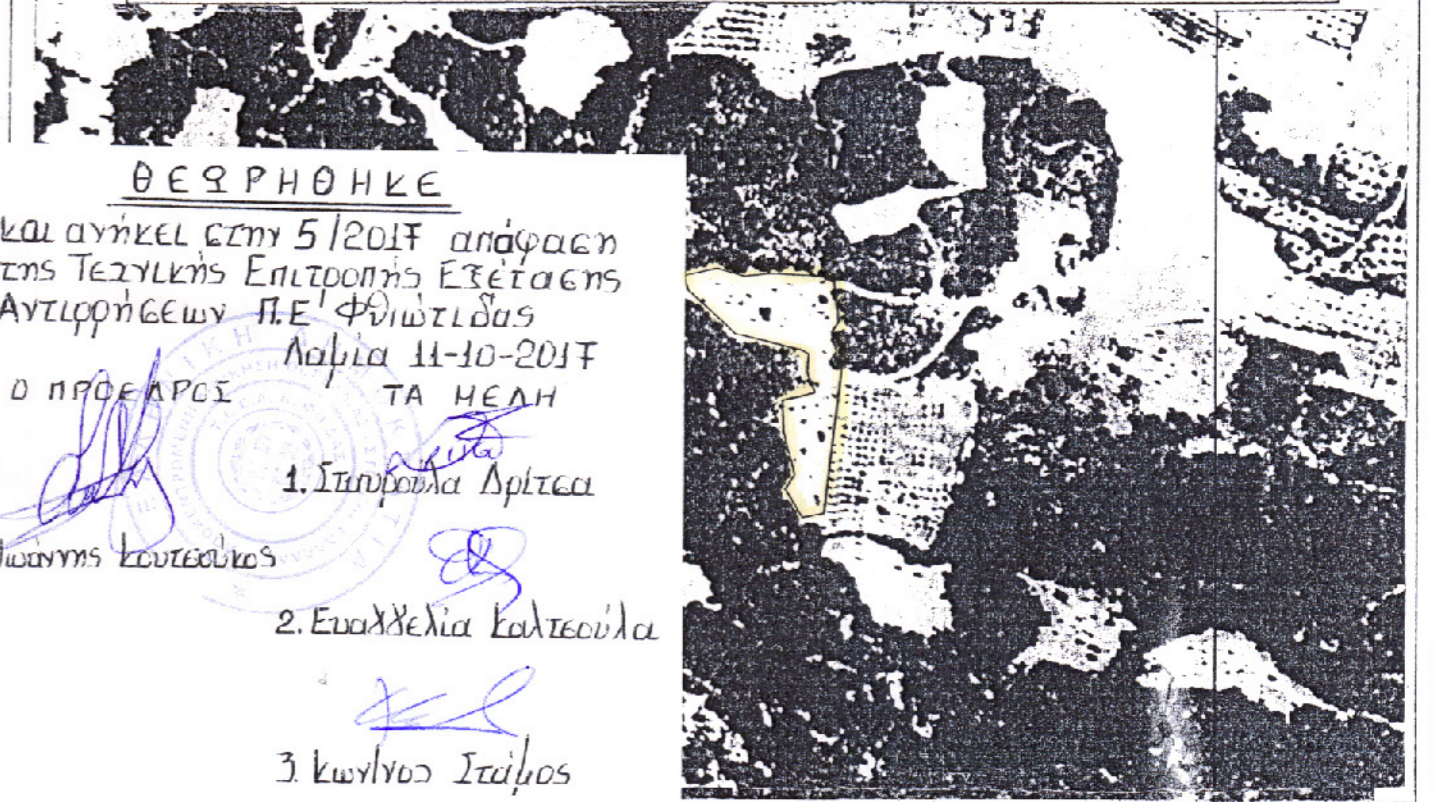 ΘΕΩΡΗΘΗΚΕ
και ανήκει στην 5/2017 απόφαση
της Τεχνικής Επιτροπής Εξέτασης
Αντιρρήσεων Π.Ε Φθιώτιδας
Λαμία 11-10-2017
Ο ΠΡΟΕΔΡΟΣ ΤΑ ΜΕΛΗ
1. Σταυρούλα Δρίτσα
Ιωάννης Κουτσούκος
2. Ευαγγελία Καλτσούλα
3. Κων/νος Στάμος